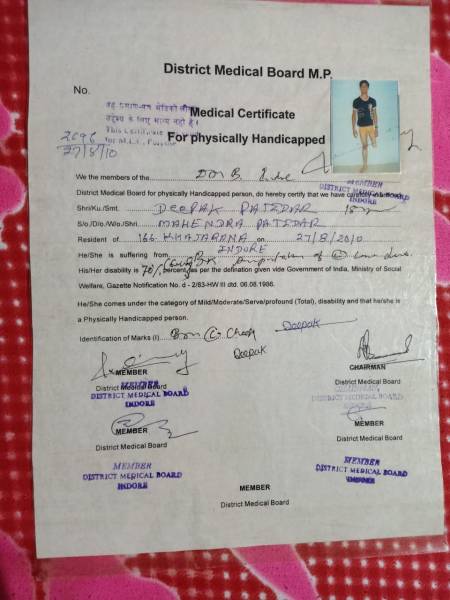 District Medical Board M.P.
No.
यह प्रमाण-पत्र मेडिको लीगल
उद्देश्य के लिए मान्य नहीं है।
This Certificate
for M.L.C. Purpose
2696
27/8/10
Medical Certificate
For physically Handicapped
We the members of the
MEMBER
DISTRICT MEDICAL BOARD
INDORE
District Medical Board for physically Handicapped person, do hereby certify that we have carefully
Shri/Ku./Smt. DEEPAK PATIDAR 18
S/o./D/o./W/o./Shri. MAHENDRA PATIDAR
Resident of 166 KHAJARANA on 27/8/2010
INDORE
He/She is suffering from Amputation of
His/Her disability is 70% percent as per the defination given vide Government of India, Ministry of Social
Welfare, Gazette Notification No. d - 2/83-HW III dtd. 06.08.1986.
He/She comes under the category of Mild/Moderate/Serve/profound (Total), disability and that he/she is
a Physically Handicapped person.
Identification of Marks (I) Cheek Deepak
Deepak
MEMBER
MEMBER
DISTRICT MEDICAL BOARD
INDORE
CHAIRMAN
District Medical Board
MEMBER
District Medical Board
MEMBER
District Medical Board
MEMBER
DISTRICT MEDICAL BOARD
INDORE
MEMBER
DISTRICT MEDICAL BOARD
MEMBER
District Medical Board